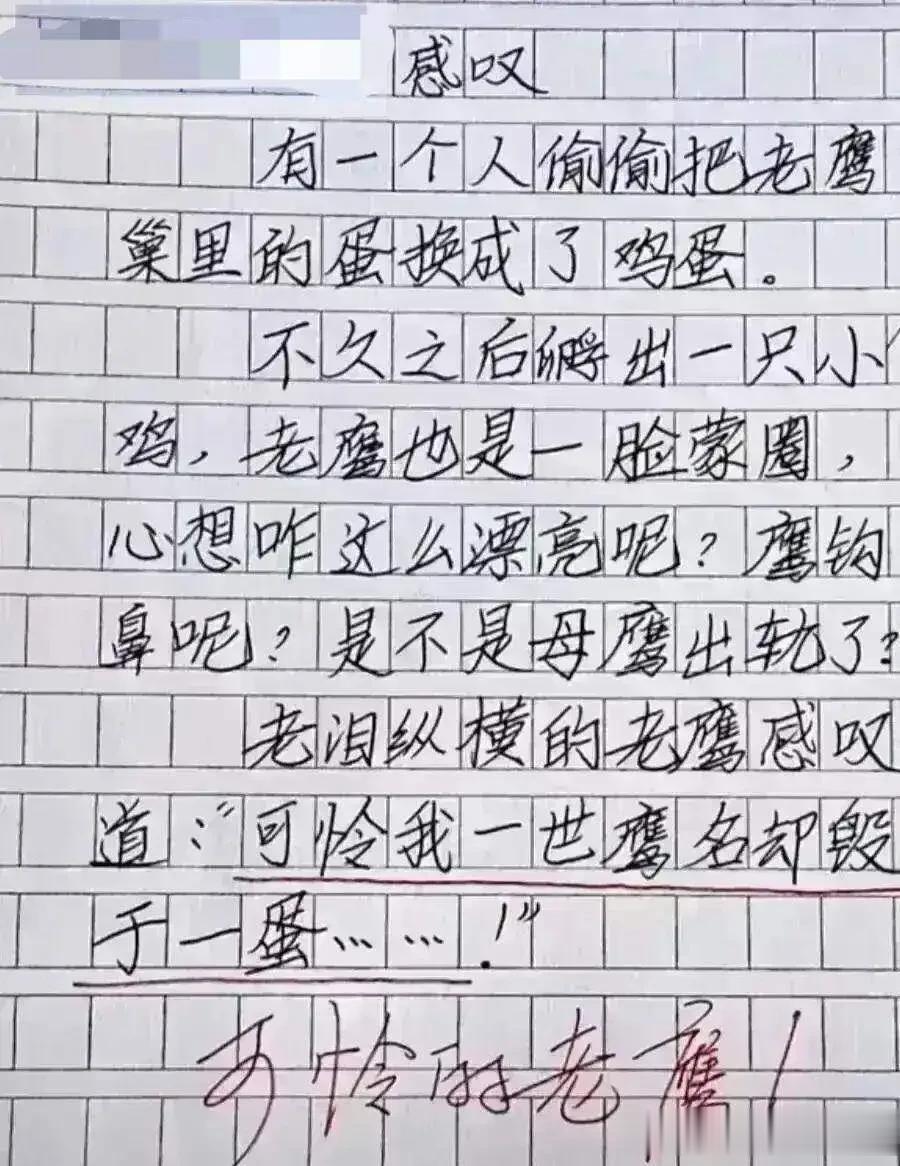 感叹
有一个人偷偷把老鹰
巢里的蛋换成了鸡蛋。
不久之后孵出一只小
鸡，老鹰也是一脸蒙圈，
心想咋这么漂亮呢？鹰钩
鼻呢？是不是母鹰出轨了？
老泪纵横的老鹰感叹
道：“可怜我一世鹰名却毁
于一蛋……！”
可怜的老鹰！